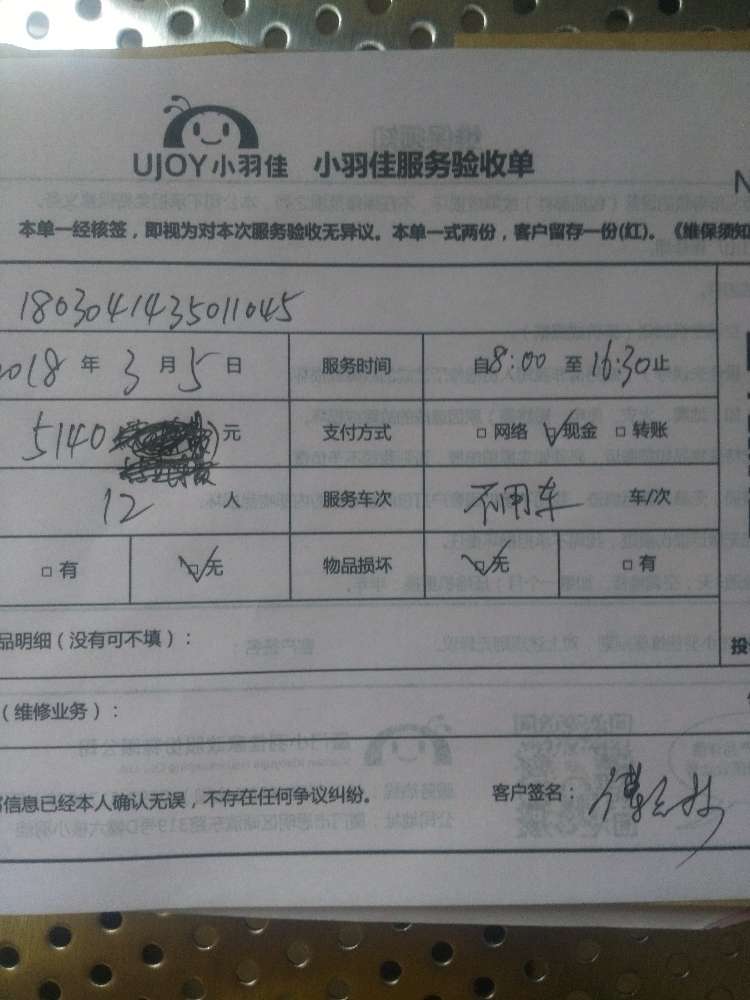 UJOY小羽佳 小羽佳服务验收单
本单一经核签，即视为对本次服务验收无异议。本单一式两份，客户留存一份(红)。《维保须知
1803041435011045
2018 年 3 月 5 日 服务时间 自8:00 至 16:30止
5140 元 支付方式 □ 网络 ☑现金 □ 转账
12 服务车次 不用车 车/次
□ 有 ☑无 物品损坏 ☑无 □ 有
品明细（没有可不填）：
投
（维修业务）：
信息已经本人确认无误，不存在任何争议纠纷。 客户签名：